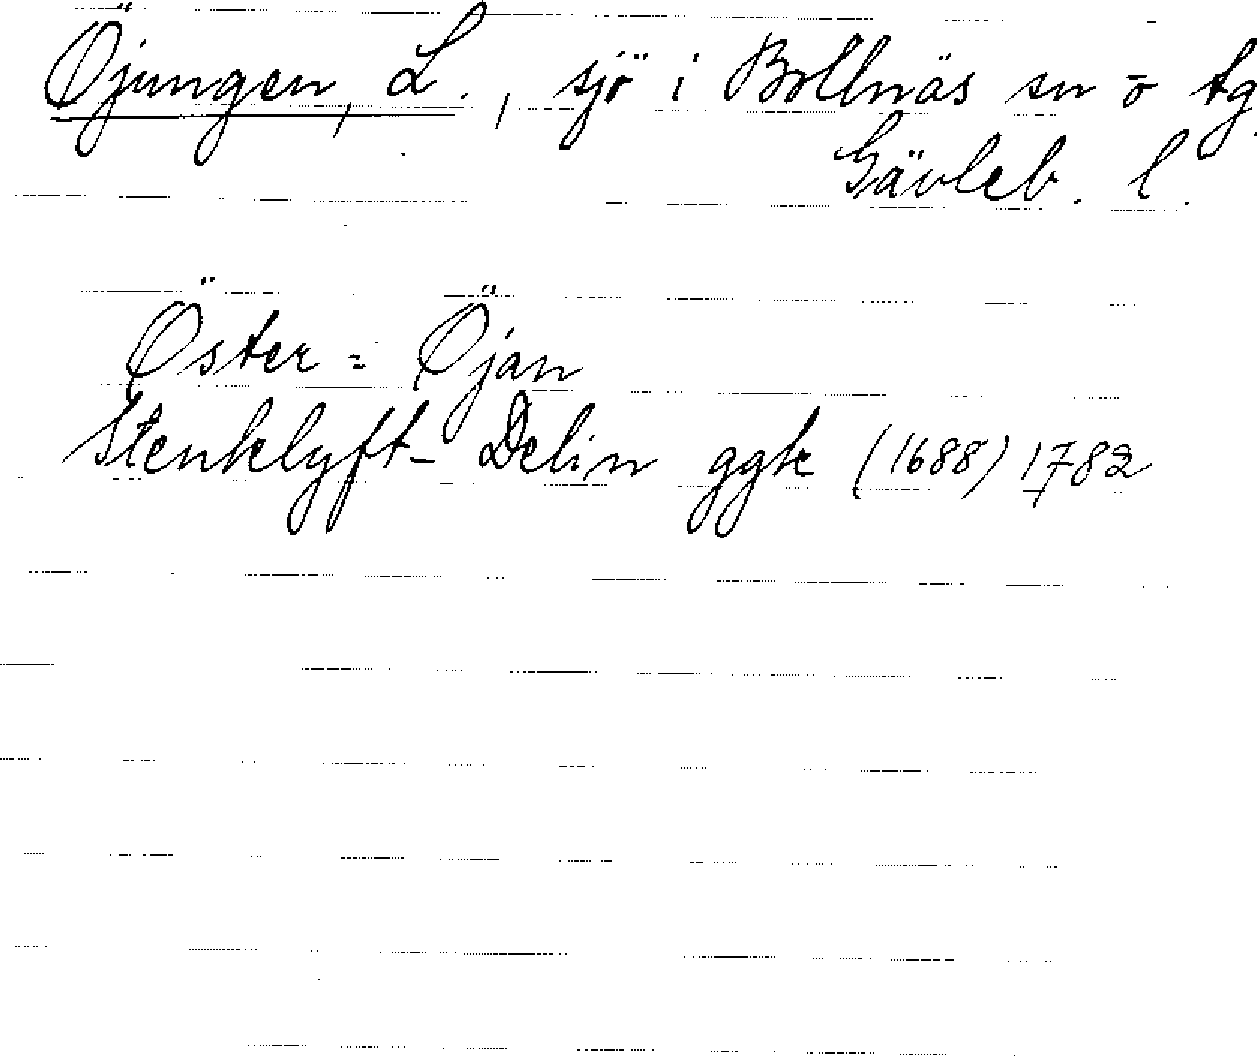 Öjungen, L., sjö i Bollnäs sn o tg
Gävleb. l.
Öster = Öjan
Stenklyft- Delin ggk (1688) 1782